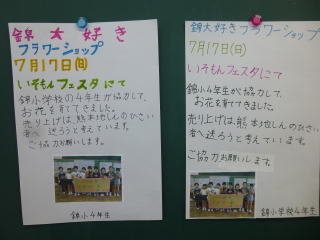 錦大好き
フラワーショップ
7月17日(日)
いそもんフェスタにて
錦小学校の4年生が協力して、
お花を育ててきました。
売り上げは、熊本地しんのひさい
者へ送ろうと考えています。
ご協力お願いします。
錦小4年生
錦大好きフラワーショップ
7月17日(日)
いそもんフェスタにて
錦小4年生が協力して、
お花を育ててきました。
売り上げは、熊本地しんのひさい
者へ送ろうと考えています。
ご協力お願いします。
錦小学校4年生